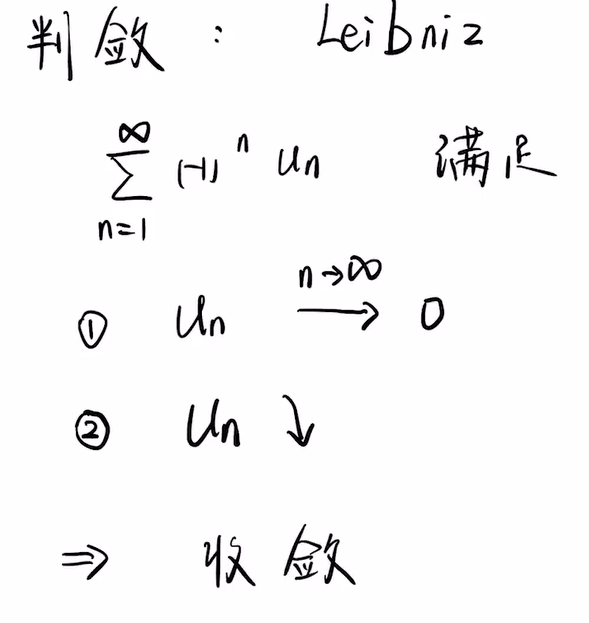 判敛： Leibniz
∞
∑ (-1)ⁿ uₙ 满足
n=1
① uₙ n→∞ ⟶ 0
② uₙ ↘
⇒ 收敛